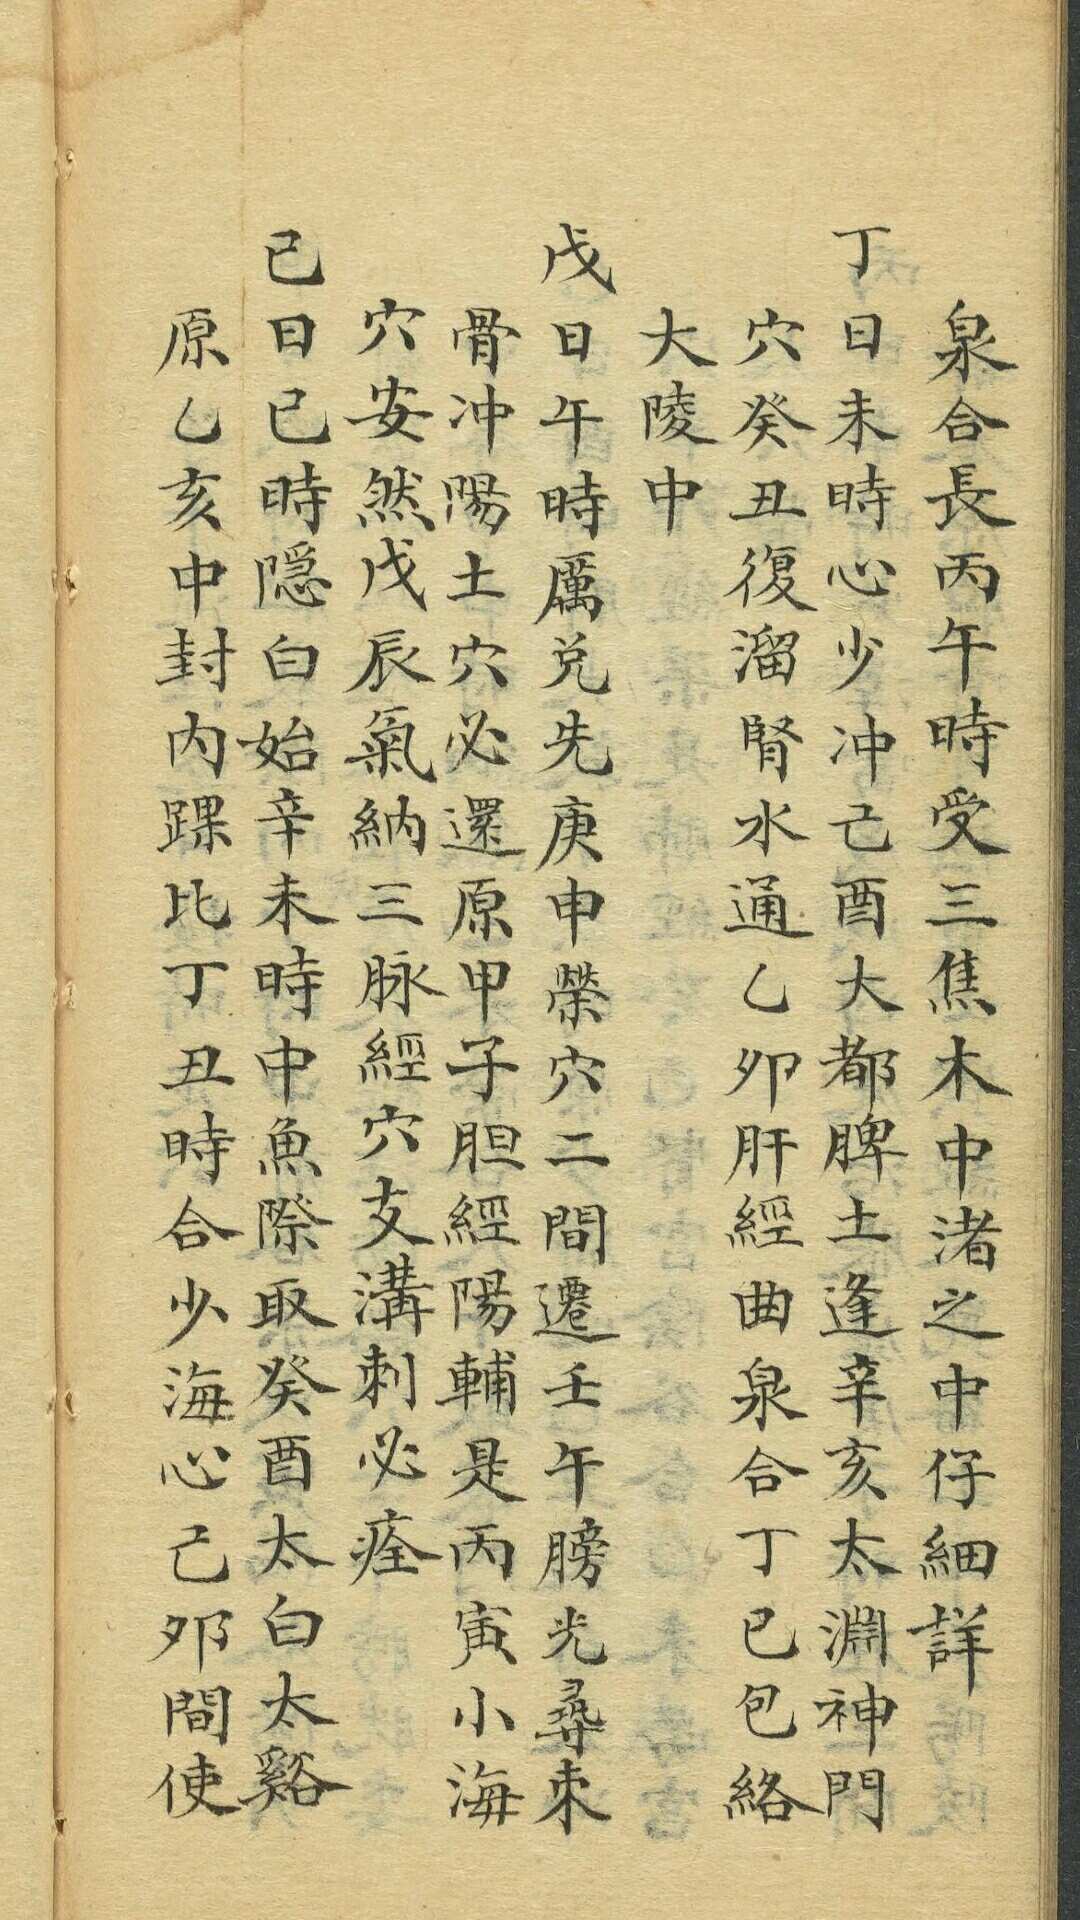 泉合長丙午時受三焦木中渚之中仔細詳
丁日未時心少冲己酉大都脾土逢辛亥太淵神門
穴癸丑復溜腎水通乙卯肝經曲泉合丁巳包絡
大陵中
戊日午時厲兌先庚申榮穴二間遷壬午膀光尋束
骨冲陽土穴必還原甲子胆經陽輔是丙寅小海
穴安然戊辰氣納三脉經穴支溝刺必痊
己日巳時隠白始辛未時中魚際取癸酉太白太谿
原乙亥中封内踝比丁丑時合少海心己卯間使